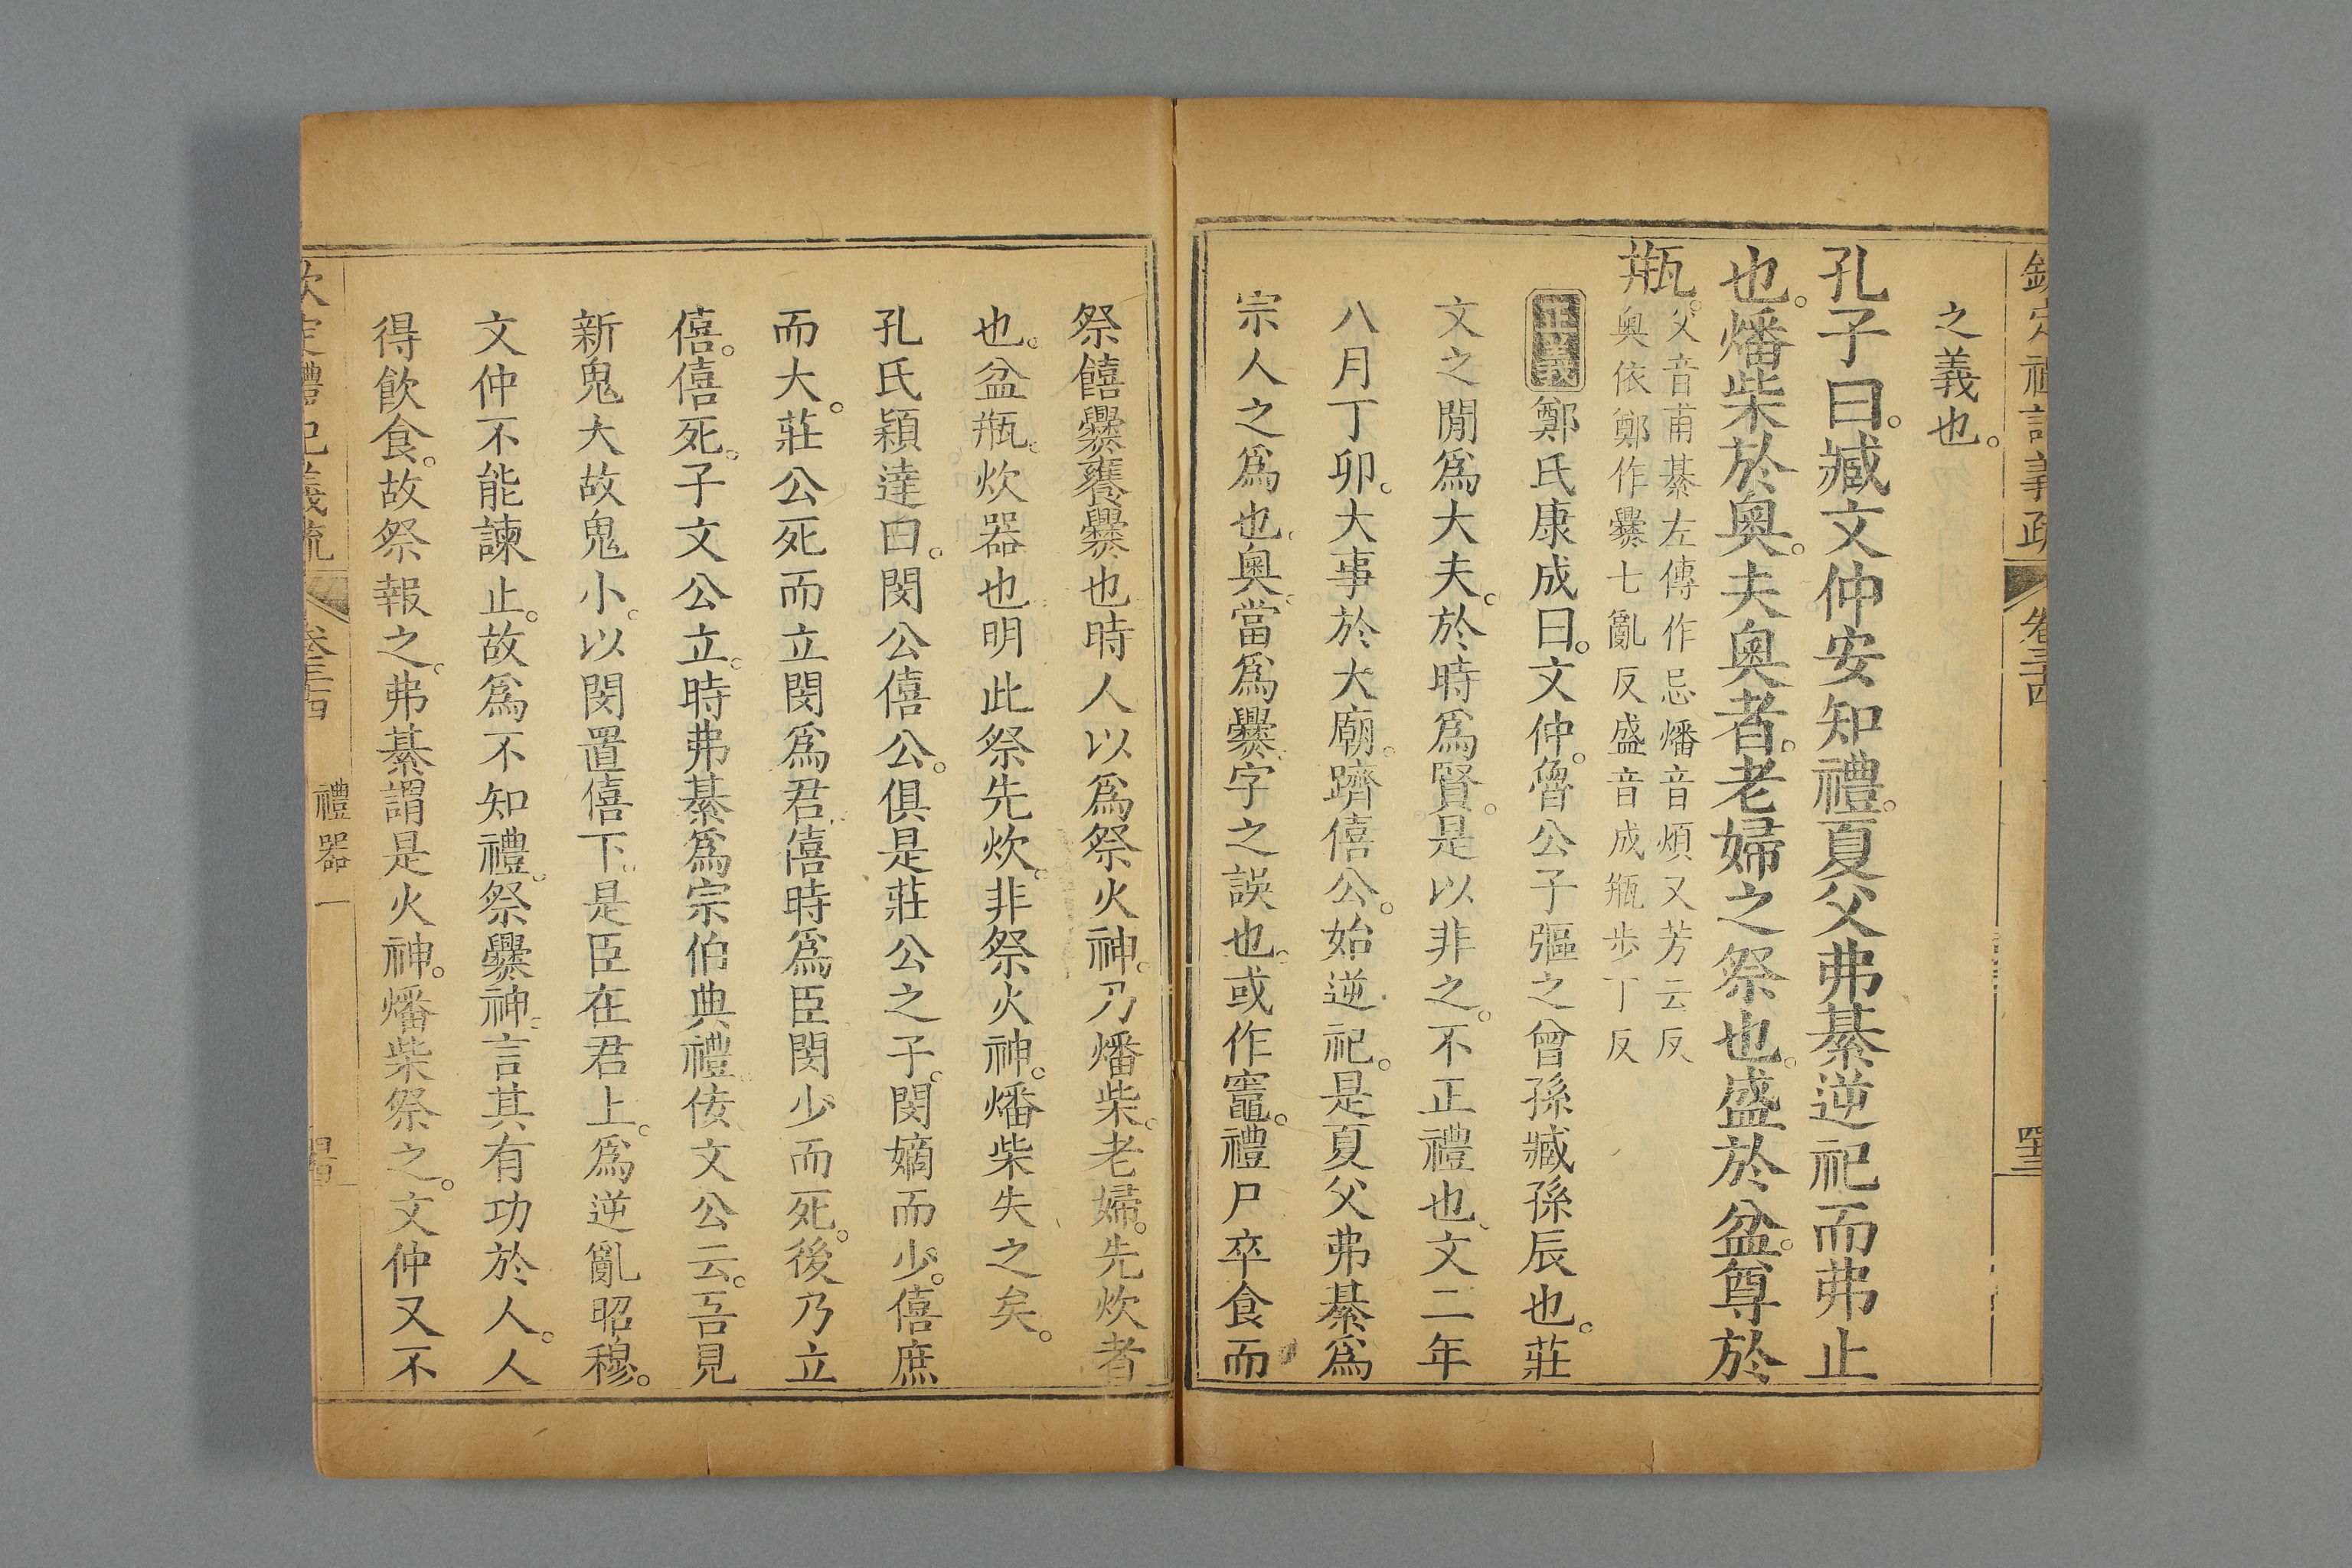 欽定禮記義疏 卷三十四 四三
之義也。
孔子曰。臧文仲安知禮。夏父弗綦逆祀而弗止
也。燔柴於奧。夫奧者。老婦之祭也。盛於盆。尊於
瓶。
父音甫綦左傳作忌燔音煩又芳云反
奧依鄭作爨七亂反盛音成瓶步丁反
正義 鄭氏康成曰。文仲。魯公子彄之曾孫臧孫辰也。莊
文之閒爲大夫。於時爲賢。是以非之。不正禮也。文二年
八月丁卯。大事於大廟。躋僖公。始逆祀。是夏父弗綦爲
宗人之爲也。奧。當爲爨。字之誤也。或作竈。禮尸卒食而
祭饎爨饔爨也時人以爲祭火神。乃燔柴。老婦。先炊者
也。盆瓶。炊器也明此祭先炊。非祭火神。燔柴失之矣。
孔氏穎達曰。閔公僖公。俱是莊公之子。閔嫡而少。僖庶
而大。莊公死而立閔爲君僖時爲臣閔少而死。後乃立
僖。僖死。子文公立。時弗綦爲宗伯典禮佞文公云。吾見
新鬼大故鬼小。以閔置僖下。是臣在君上。爲逆亂昭穆。
文仲不能諫止。故爲不知禮。祭爨神。言其有功於人。人
得飲食。故祭報之。弗綦謂是火神。燔柴祭之。文仲又不
欽定禮記義疏 卷三十四 禮器一